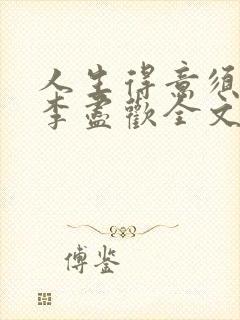 人生得意须
李尽歡全文
傅鉴